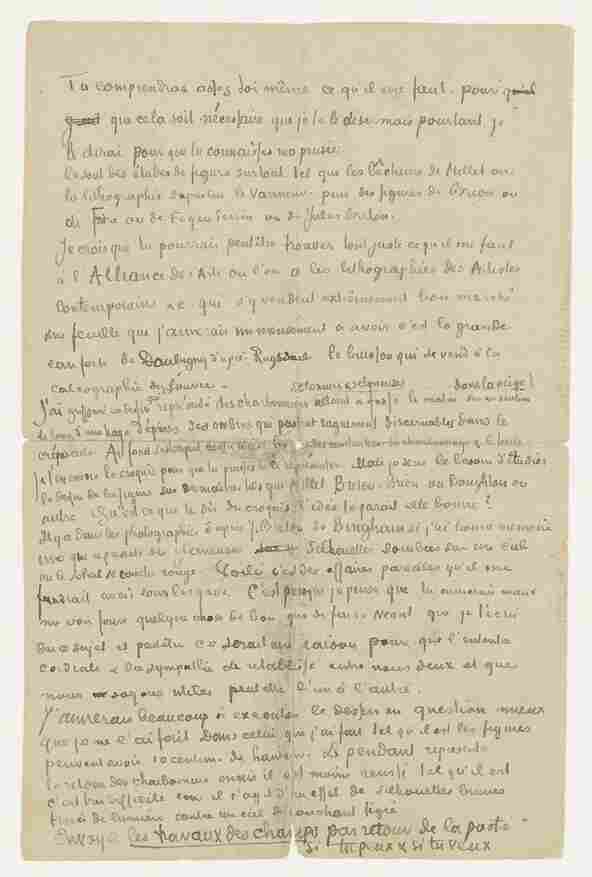 Tu comprendras assez toi même ce qu'il me faut. pour qu'il
que cela soit nécessaire que je te le dise mais pourtant je
te dirai pour que tu connaisses ma pensée.
Ce sont des études de figure surtout tel que les bêcheurs de Millet ou
la lithographie d'après le Vanneur. puis des figures de Brion ou
de Frère ou de Feyen Perrin ou de Jules Breton.
Je crois que tu pourrais peutêtre trouver tout juste ce qu'il me faut
à l'Alliance des Arts ou l'on a les lithographies des Artistes
contemporains & ce que s'y vendent extrêmement bon marché
une feuille que j'aimerais immensément a avoir c'est la grande
eau forte de Daubigny d'après Ruysdael le buisson qui se vend à la
calcographie du Louvre.
J'ai griffonné un dessin représentant des charbonniers allant a la fosse le matin dans la neige
crépuscule. Au fond
je t'en envoie le croquis pour que tu puisses te le représenter. Mais je sens le besoin d'étudier
le dessin de la figure sur des maîtres tels que Millet Breton Brion ou Boughton ou
autre. Qu'est ce que tu dis du croquis, l'idée te parait elle bonne?
Il y a dans les photographies d'après J. Breton de Bingham si j'ai bonne mémoire
une qui représente des glaneuses silhouettes sombres sur un ciel
ou le soleil se couche rouge. Voilà c'est des affaires pareilles qu'il me
faudrait avoir sous les yeux. C'est parce que je pense que tu aimerais mieux
me voir faire quelque chose de bon que de faire néant que je t'écris
du sujet et peutêtre ce serait une raison pour que l'entente
cordiale & la sympathie se rétablisse entre nous deux et que
nous soyons utiles peut être l'un à l'autre.
J'aimerais beaucoup à exécuter le dessin en question mieux
que je ne l'ai fait. Dans celui que j'ai fait tel qu'il est les figures
peuvent avoir 10 centim. de hauteur. Le pendant représente
le retour des charbonniers mais il est moins réussi tel qu'il est
c'est très difficile car il s'agit d'un effet de silhouettes brunes
frisées de lumière contre un ciel de couchant tigré
Envoyé les travaux des champs par retour de la poste
si tu peux & si tu veux